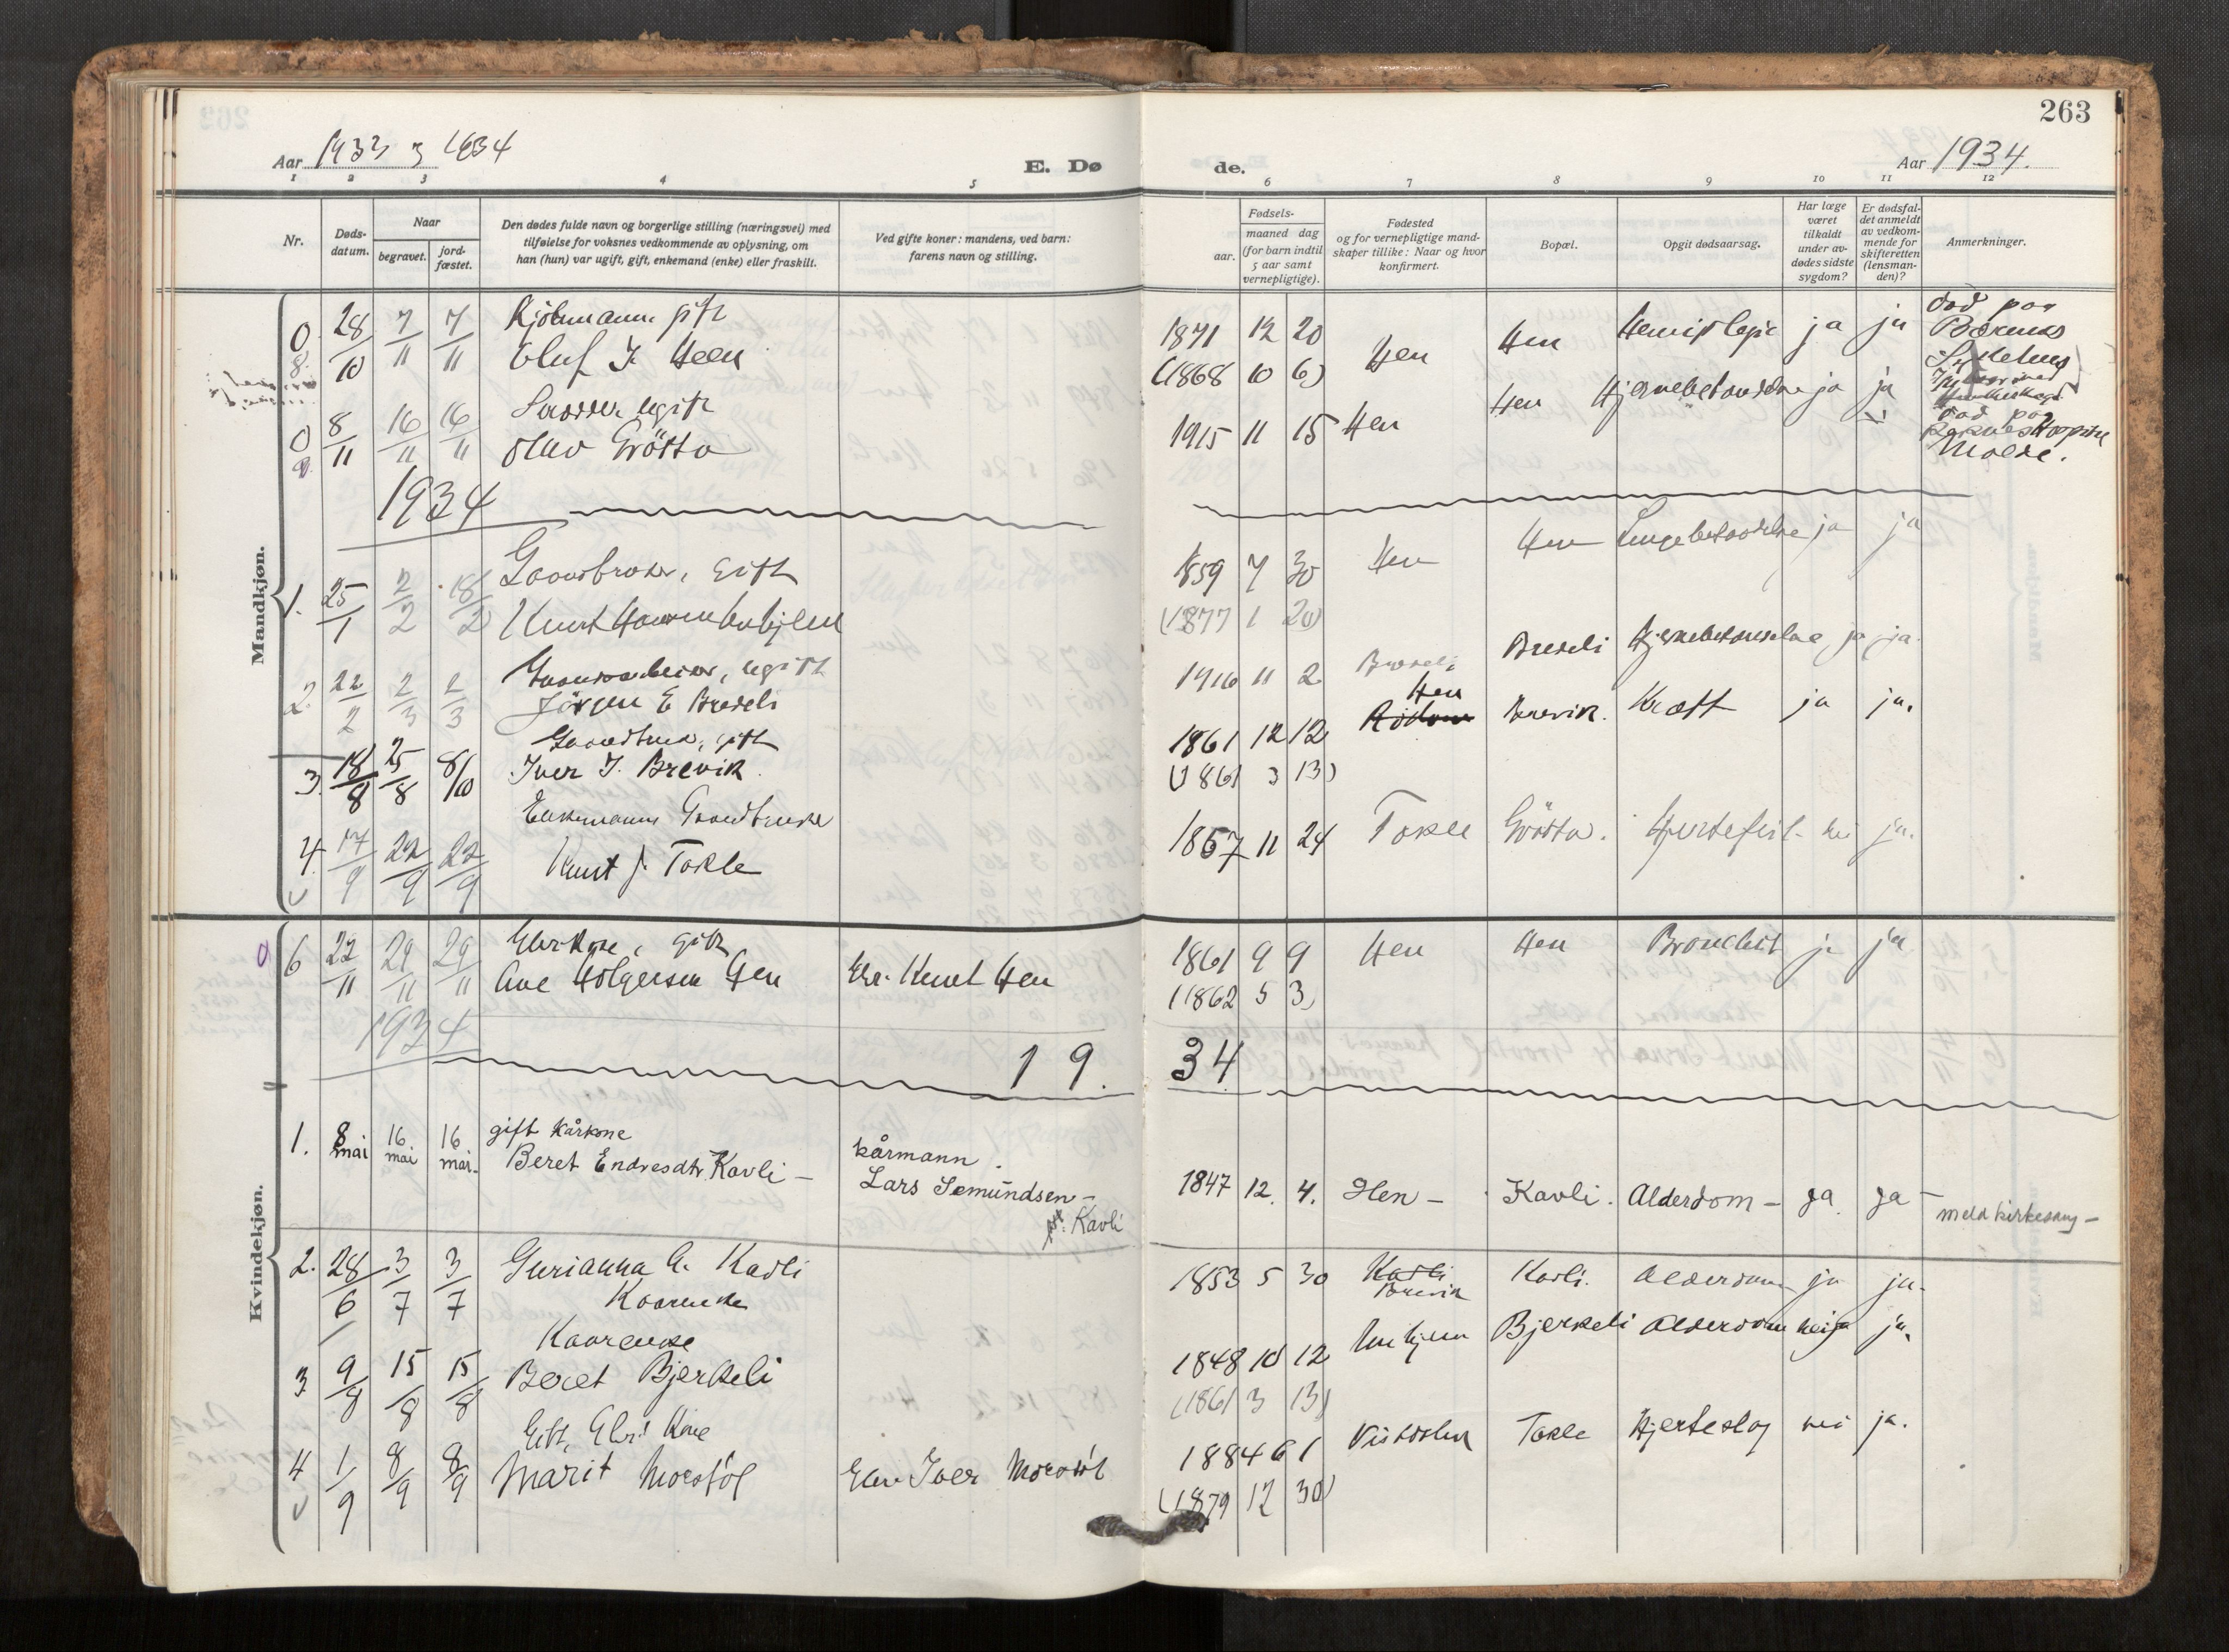 263
Aar 1933 1934
E. Dø
de.
Aar 1934.
1 2 3 4 5 6 7 8 9 10 11 12
Nr.
Døds-
datum.
Naar
begravet.
jord-
fæstet.
Den dødes fulde navn og borgerlige stilling (næringsvei) med
tilføielse for voksnes vedkommende av oplysning, om
han (hun) var ugift, gift, enkemand (enke) eller fraskilt.
Ved gifte koner: mandens, ved barn:
farens navn og stilling.
Fødsels-
aar.
maaned dag
(for barn indtil
5 aar samt
vernepligtige).
Fødested
og for vernepligtige mand-
skaper tillike: Naar og hvor
konfirmert.
Bopæl.
Opgit dødsaarsag.
Har læge
været
tilkaldt
under av-
dødes sidste
sygdom?
Er dødsfal-
det anmeldt
av vedkom-
mende for
skifteretten
(lensman-
den)?
Anmerkninger.
Mandkjøn.
8. 28/10 7/11 7/11 Kjøbmann gift
Oluf J. Heen
1871 12 20 Hen Hen Hemiplegie ja ja
(1868 10 6)
død paa
9. 8/11 16/11 16/11 ugift
Olav Grötta
1915 11 15 Hen Hen Hjernebetendelse ja ja
død paa
Molde.
1934
1. 25/1 2/2 18/2 Gaardbruker, Gift
Knut
1859 7 30 Hen Hen Lungebetendelse ja ja
(1877 1 20)
2. 22/2 2/3 2/3 Gaardsarbeider, ugift
Jörgen E Bredeli
1916 11 2 Bredeli Bredeli Hjernebetendelse ja ja.
3. 18/8 25/8 8/10 Gaardbruker, gift
Iver J. Brevik.
1861 12 12 Hen Brevik. Kræft ja ja.
(1861 3 13)
4. 17/9 22/9 22/9 Enkemann Gaardbruker
Knut J. Tokle
1867 11 24 Tokle Grötta. Hjertefeil nei ja.
Kvindekjøn.
6 22/11 29/11 29/11 gift
Ane Holgersen Hen
Knut Hen
1861 9 9 Hen Hen Bronchit ja ja
(1862 5 3)
1934
19.34
1. 8 mai 16. mai 16 mai. gift kårkone
Beret Endresdtr. Kavli –
kårmann.
Lars Semundsen –
Kavli
1847 12. 4. Hen – Kavli. Alderdom – ja. ja –
meld kirkesang –
2. 28/6 3/7 3/7 Gurianna A. Kavli
Kaarenke
1853 5 30 Kavli Brevik Kavli. Alderdom ja ja.
3 9/8 15/8 15/8 Kaarenke
Beret Bjerkeli
1848 10 12 Bjerkeli Alderdom nei ja.
(1861 3 13)
4 1/9 8/9 8/9 Gift, Kone
Marit Morstöl
Iver Morstöl
1884 6 1 Tokle Hjerteslag nei ja.
(1879 12 30)